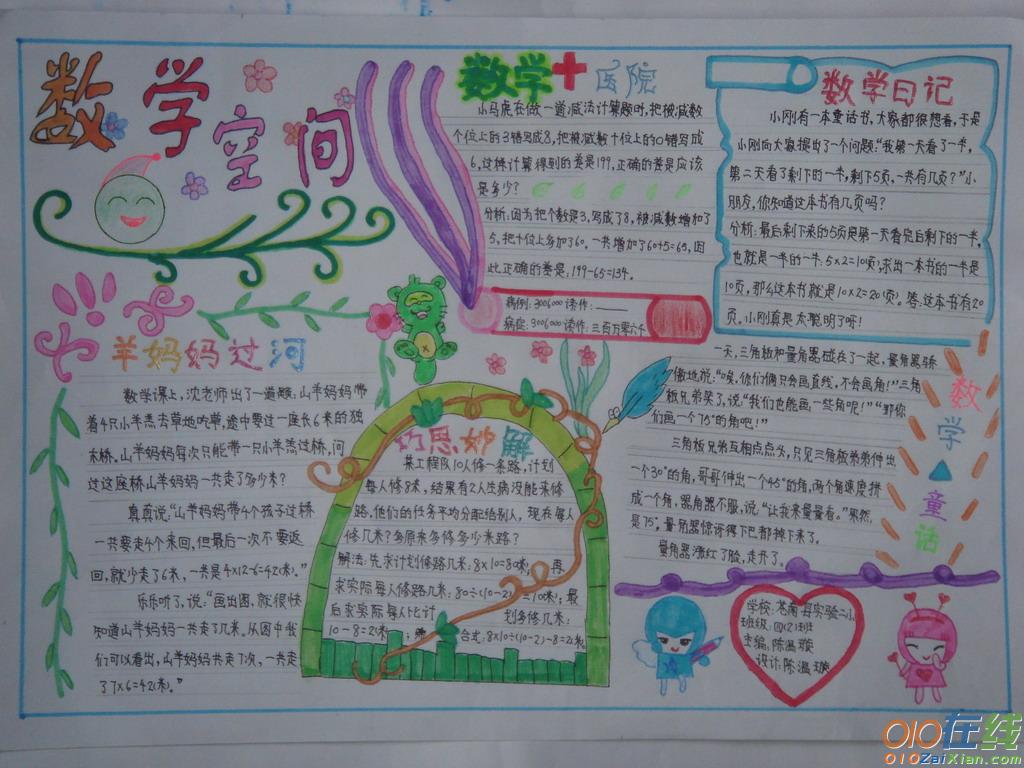 数学空间
数学十医院
小马虎在做一道减法计算题时,把被减数
个位上的3错写成8,把被减数十位上的0错写成
6,这样计算得到的差是199,正确的差是应该
是多少?
分析:因为把个数是3,写成了8,被减数增加了
5,把十位上多加了60,一共增加了60+5=65,因
此正确的差是:199-65=134。
病例:3006000读作:
病症:3006000读作:三百万零六千
数学日记
小刚有一本童话书,大家都很想看,于是
小刚向大家提出了一个问题:“我第一天看了一半,
第二天看了剩下的一半,剩下5页,一共有几页?”小
朋友,你知道这本书有几页吗?
分析:最后剩下来的5页是第一天看完后剩下的一半,
也就是一半的一半:5×2=10(页),求出一本书的一半是
10页,那么这本书就是10×2=20(页)。答:这本书有20
页。小刚真是太聪明了呀!
羊妈妈过河
数学课上,沈老师出了一道题,山羊妈妈带
着4只小羊羔去草地吃草,途中要过一座长6米的独
木桥。山羊妈妈每次只能带一只小羊羔过桥,问
过这座桥山羊妈妈一共走了多少米?
真真说:“山羊妈妈带4个孩子过桥
一共要走4个来回,但最后一次不要返
回,就少走了6米,一共是4×12-6=42(米)。”
乐乐听了,说:“画出图,就很快
知道山羊妈妈一共走了几米。从图中我
们可以看出,山羊妈妈共走7次,一共走
了7×6=42(米)。”
巧思妙解
某工程队10人修一条路,计划
每人修8米,结果有2人生病没能来修
路,他们的任务平均分配给别人,现在每人
修几米?多原来多修多少米路?
解法:先求计划修路几米:8×10=80(米),再
求实际每人修路几米:80÷(10-2)=10(米);最
后求实际每人比计划多修几米:
10-8=2(米) 合式:8×10÷(10-2)-8=2(米)
数学童话
一天,三角板和量角器碰在了一起,量角器骄
傲地说:“唉,你们俩只会画直线,不会画角!”三角
板兄弟笑了,说:“我们也能画一些角呢!”“那你
们画一个75°的角吧!”
三角板兄弟互相点点头,只见三角板弟弟伸出
一个30°的角,哥哥伸出一个45°的角,两个角速度拼
成一个角,量角器不服,说:“让我来量量看。”果然,
是75°。量角器惊讶得下巴都掉下来了。
量角器涨红了脸,走开了。
学校:苍南县实验一小
班级:四(2)班
主编:陈温璇
设计:陈温璇
010在线
010ZaiXian.com